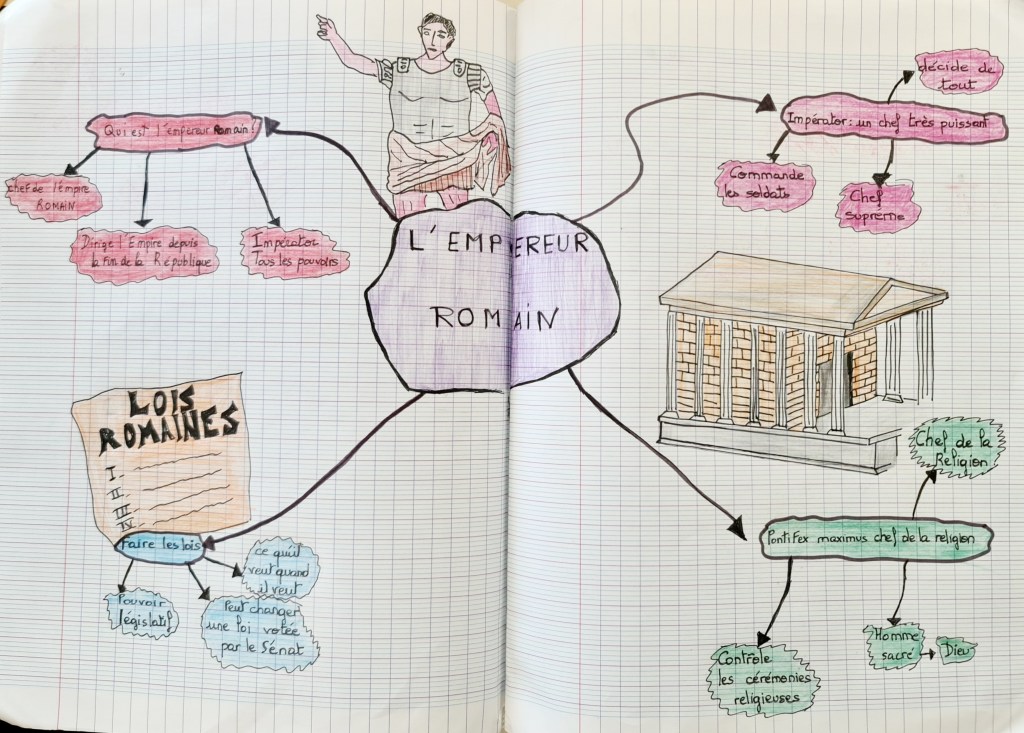 L'EMPEREUR
ROMAIN
Qui est l'empereur Romain?
chef de l'empire
ROMAIN
Dirige l'Empire depuis
la fin de la République
Impérator
Tous les pouvoirs
décide de
tout
Impérator: un chef très puissant
Commande
les soldats
Chef
suprême
LOIS
ROMAINES
I-
II-
III-
IV-
Faire les lois
ce qu'il
veut quand
il veut
Pouvoir
législatif
Peut changer
une loi votée
par le Sénat
Chef de la
Religion
Pontifex maximus chef de la religion
Homme
sacré
Dieu
Contrôle
les cérémonies
religieuses